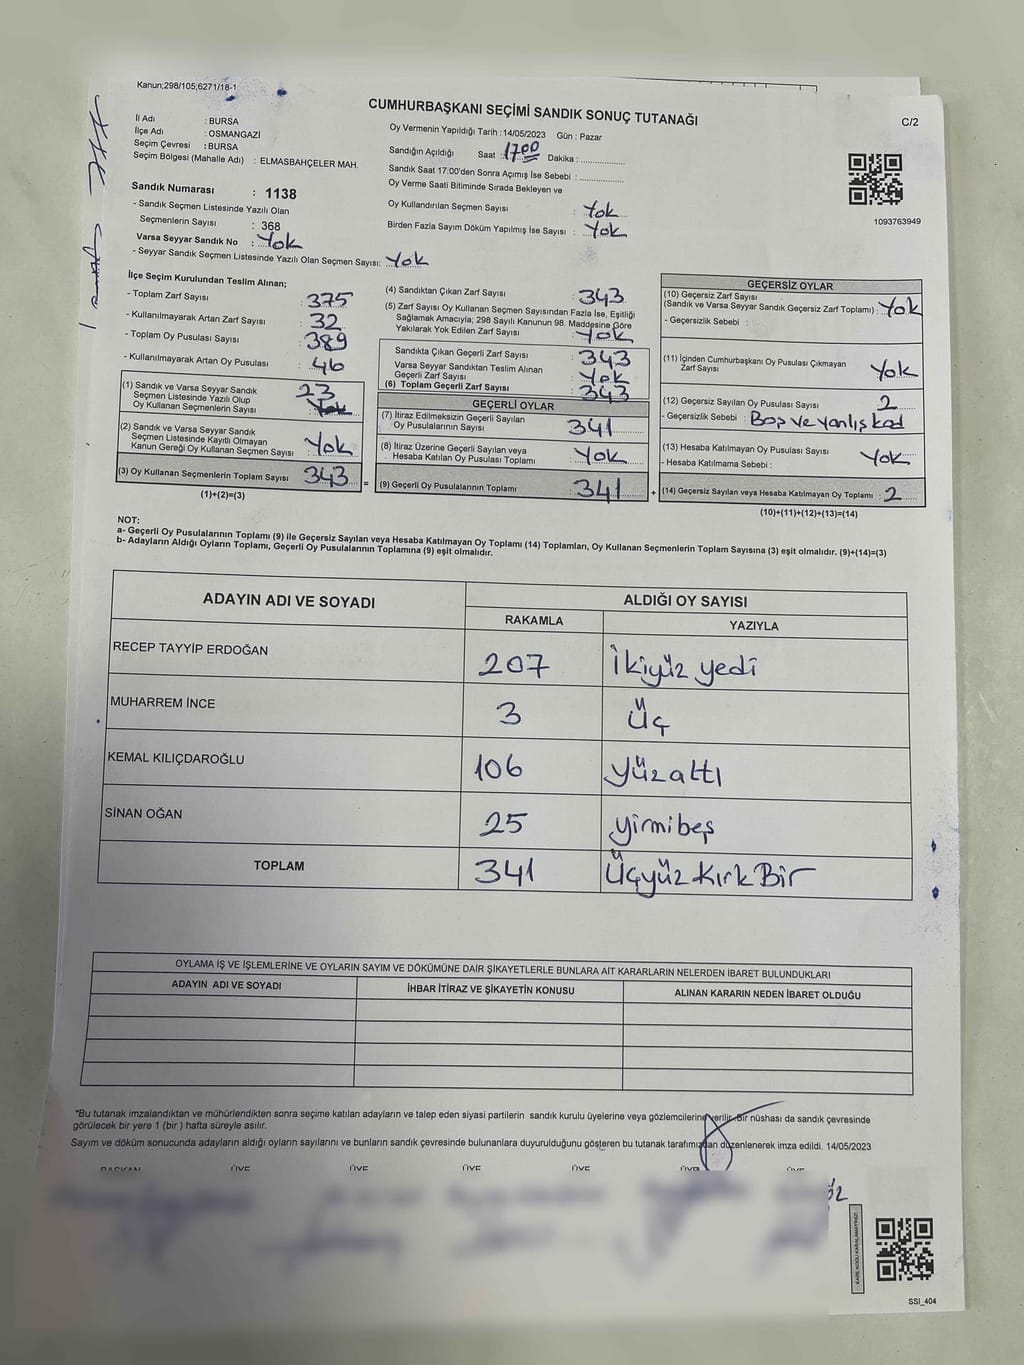 Kanun;298/105;6271/18-1
CUMHURBAŞKANI SEÇİMİ SANDIK SONUÇ TUTANAĞI
C/2
İl Adı : BURSA
İlçe Adı : OSMANGAZİ
Seçim Çevresi : BURSA
Seçim Bölgesi (Mahalle Adı) : ELMASBAHÇELER MAH.
Sandık Numarası : 1138
- Sandık Seçmen Listesinde Yazılı Olan
Seçmenlerin Sayısı : 368
Varsa Seyyar Sandık No : Yok
- Seyyar Sandık Seçmen Listesinde Yazılı Olan Seçmen Sayısı: Yok
Oy Vermenin Yapıldığı Tarih : 14/05/2023 Gün : Pazar
Sandığın Açıldığı Saat : 1700 Dakika :
Sandık Saat 17:00'den Sonra Açımış İse Sebebi :
Oy Verme Saati Bitiminde Sırada Bekleyen ve
Oy Kullandırılan Seçmen Sayısı : Yok
Birden Fazla Sayım Döküm Yapılmış İse Sayısı : Yok
1093763949
İlçe Seçim Kurulundan Teslim Alınan;
- Toplam Zarf Sayısı : 375
- Kullanılmayarak Artan Zarf Sayısı : 32
- Toplam Oy Pusulası Sayısı : 389
- Kullanılmayarak Artan Oy Pusulası : 46
(1) Sandık ve Varsa Seyyar Sandık
Seçmen Listesinde Yazılı Olup
Oy Kullanan Seçmenlerin Sayısı : 23
(2) Sandık ve Varsa Seyyar Sandık
Seçmen Listesinde Kayıtlı Olmayan
Kanun Gereği Oy Kullanan Seçmen Sayısı : Yok
(3) Oy Kullanan Seçmenlerin Toplam Sayısı : 343 =
(1)+(2)=(3)
(4) Sandıktan Çıkan Zarf Sayısı : 343
(5) Zarf Sayısı Oy Kullanan Seçmen Sayısından Fazla İse, Eşitliği
Sağlamak Amacıyla; 298 Sayılı Kanunun 98. Maddesine Göre
Yakılarak Yok Edilen Zarf Sayısı : Yok
Sandıkta Çıkan Geçerli Zarf Sayısı : 343
Varsa Seyyar Sandıktan Teslim Alınan
Geçerli Zarf Sayısı : Yok
(6) Toplam Geçerli Zarf Sayısı : 343
GEÇERLİ OYLAR
(7) İtiraz Edilmeksizin Geçerli Sayılan
Oy Pusulalarının Sayısı : 341
(8) İtiraz Üzerine Geçerli Sayılan veya
Hesaba Katılan Oy Pusulası Toplamı : Yok
(9) Geçerli Oy Pusulalarının Toplamı : 341 +
GEÇERSİZ OYLAR
(10) Geçersiz Zarf Sayısı
(Sandık ve Varsa Seyyar Sandık Geçersiz Zarf Toplamı) : Yok
- Geçersizlik Sebebi :
(11) İçinden Cumhurbaşkanı Oy Pusulası Çıkmayan
Zarf Sayısı : Yok
(12) Geçersiz Sayılan Oy Pusulası Sayısı : 2
- Geçersizlik Sebebi : Boş ve yanlış
(13) Hesaba Katılmayan Oy Pusulası Sayısı : Yok
- Hesaba Katılmama Sebebi :
(14) Geçersiz Sayılan veya Hesaba Katılmayan Oy Toplamı : 2
(10)+(11)+(12)+(13)=(14)
NOT:
a- Geçerli Oy Pusulalarının Toplamı (9) ile Geçersiz Sayılan veya Hesaba Katılmayan Oy Toplamı (14) Toplamları, Oy Kullanan Seçmenlerin Toplam Sayısına (3) eşit olmalıdır. (9)+(14)=(3)
b- Adayların Aldığı Oyların Toplamı, Geçerli Oy Pusulalarının Toplamına (9) eşit olmalıdır.
ADAYIN ADI VE SOYADI ALDIĞI OY SAYISI
RAKAMLA YAZIYLA
RECEP TAYYİP ERDOĞAN 207 İkiyüz yedi
MUHARREM İNCE 3 Üç
KEMAL KILIÇDAROĞLU 106 yüz altı
SİNAN OĞAN 25 yirmibeş
TOPLAM 341 Üçyüz Kırk Bir
OYLAMA İŞ VE İŞLEMLERİNE VE OYLARIN SAYIM VE DÖKÜMÜNE DAİR ŞİKAYETLERLE BUNLARA AİT KARARLARIN NELERDEN İBARET BULUNDUKLARI
ADAYIN ADI VE SOYADI İHBAR İTİRAZ VE ŞİKAYETİN KONUSU ALINAN KARARIN NEDEN İBARET OLDUĞU
*Bu tutanak imzalandıktan ve mühürlendikten sonra seçime katılan adayların ve talep eden siyasi partilerin sandık kurulu üyelerine veya gözlemcilerine verilir. Bir nüshası da sandık çevresinde
görülecek bir yere 1 (bir ) hafta süreyle asılır.
Sayım ve döküm sonucunda adayların aldığı oyların sayılarını ve bunların sandık çevresinde bulunanlara duyurulduğunu gösteren bu tutanak tarafımızdan düzenlenerek imza edildi. 14/05/2023
BAŞKAN ÜYE ÜYE ÜYE ÜYE ÜYE ÜYE
KARE KODU KARALAMAYINIZ!
SSI_404